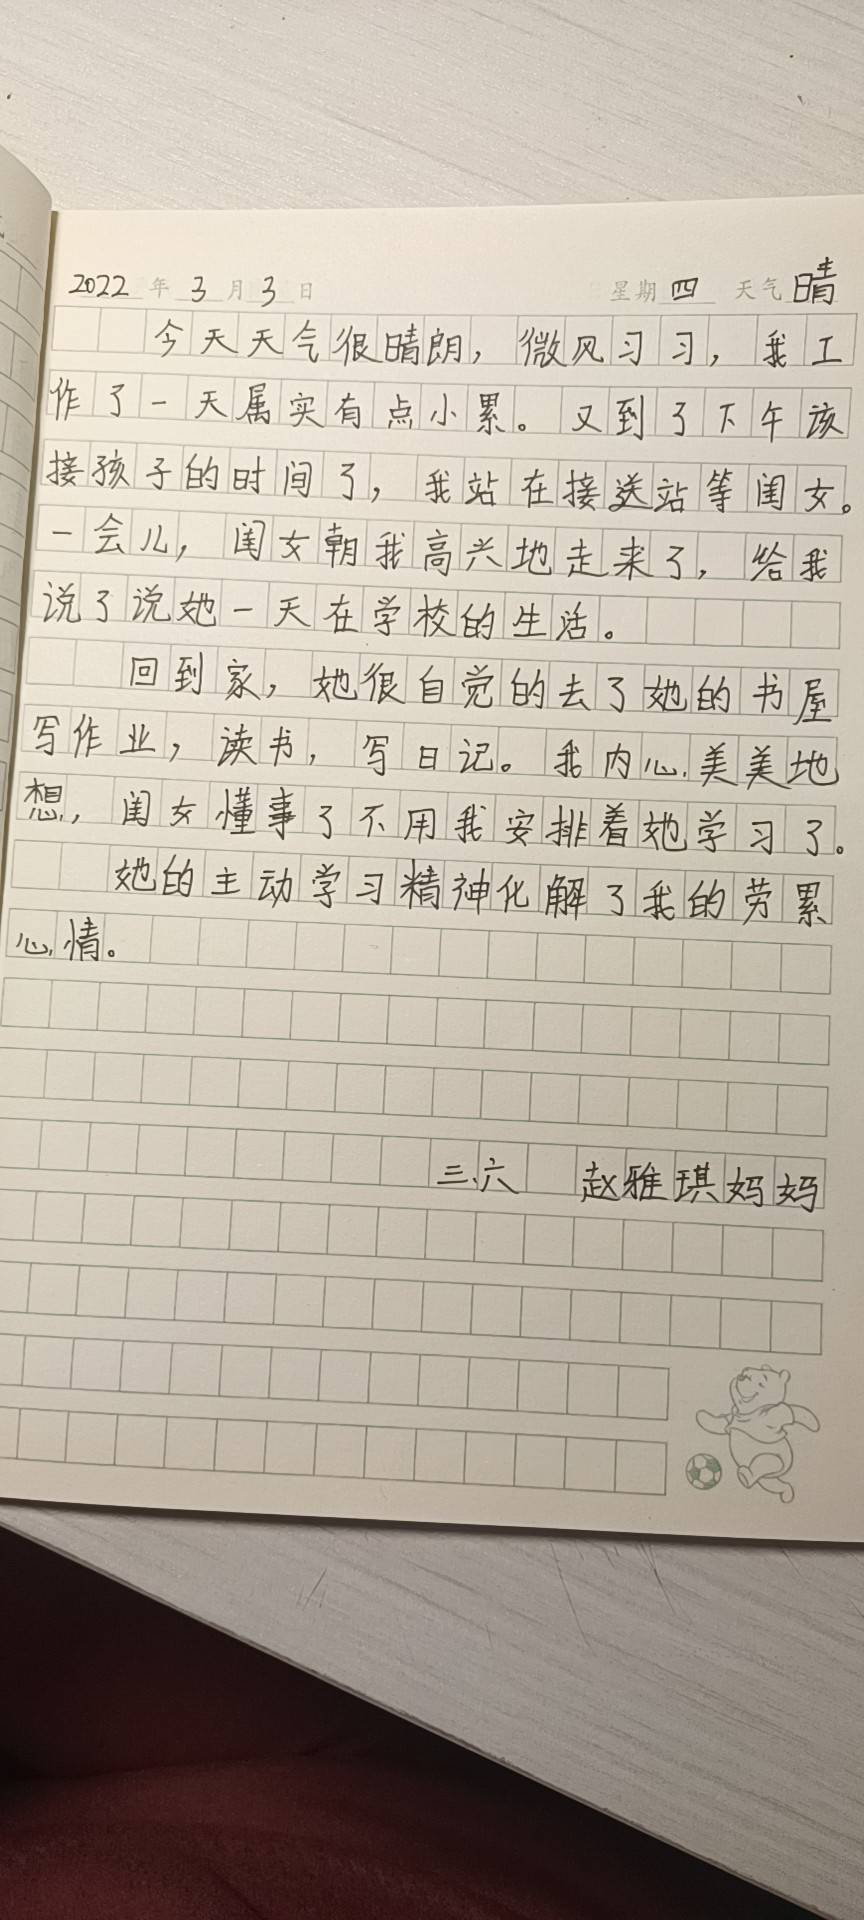 2022年3月3日 星期四 天气晴
今天天气很晴朗，微风习习，我工
作了一天属实有点小累。又到了下午该
接孩子的时间了，我站在接送站等闺女。
一会儿，闺女朝我高兴地走来了，给我
说了说她一天在学校的生活。
回到家，她很自觉的去了她的书屋
写作业，读书，写日记。我内心美美地
想，闺女懂事了不用我安排着她学习了。
她的主动学习精神化解了我的劳累
心情。
三、六 赵雅琪妈妈